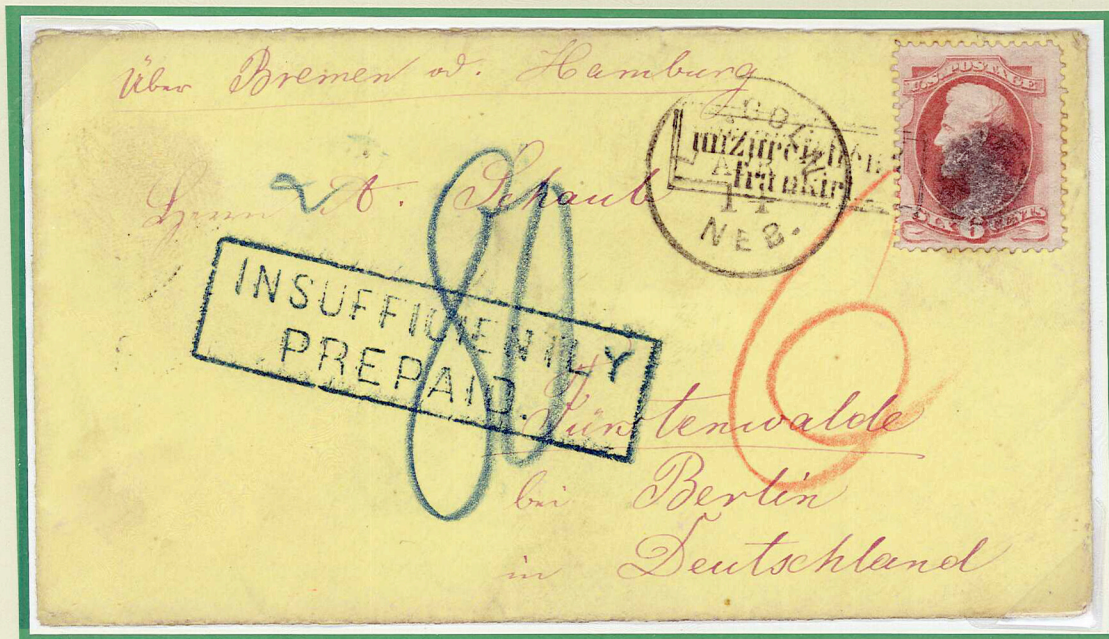 Über Bremen od. Hamburg
U.S. POSTAGE
SIX 6 CENTS
NEB.
Herrn A. Schaub
INSUFFICIENTLY
PREPAID.
80
6
Fürstenwalde
bei Berlin
in Deutschland